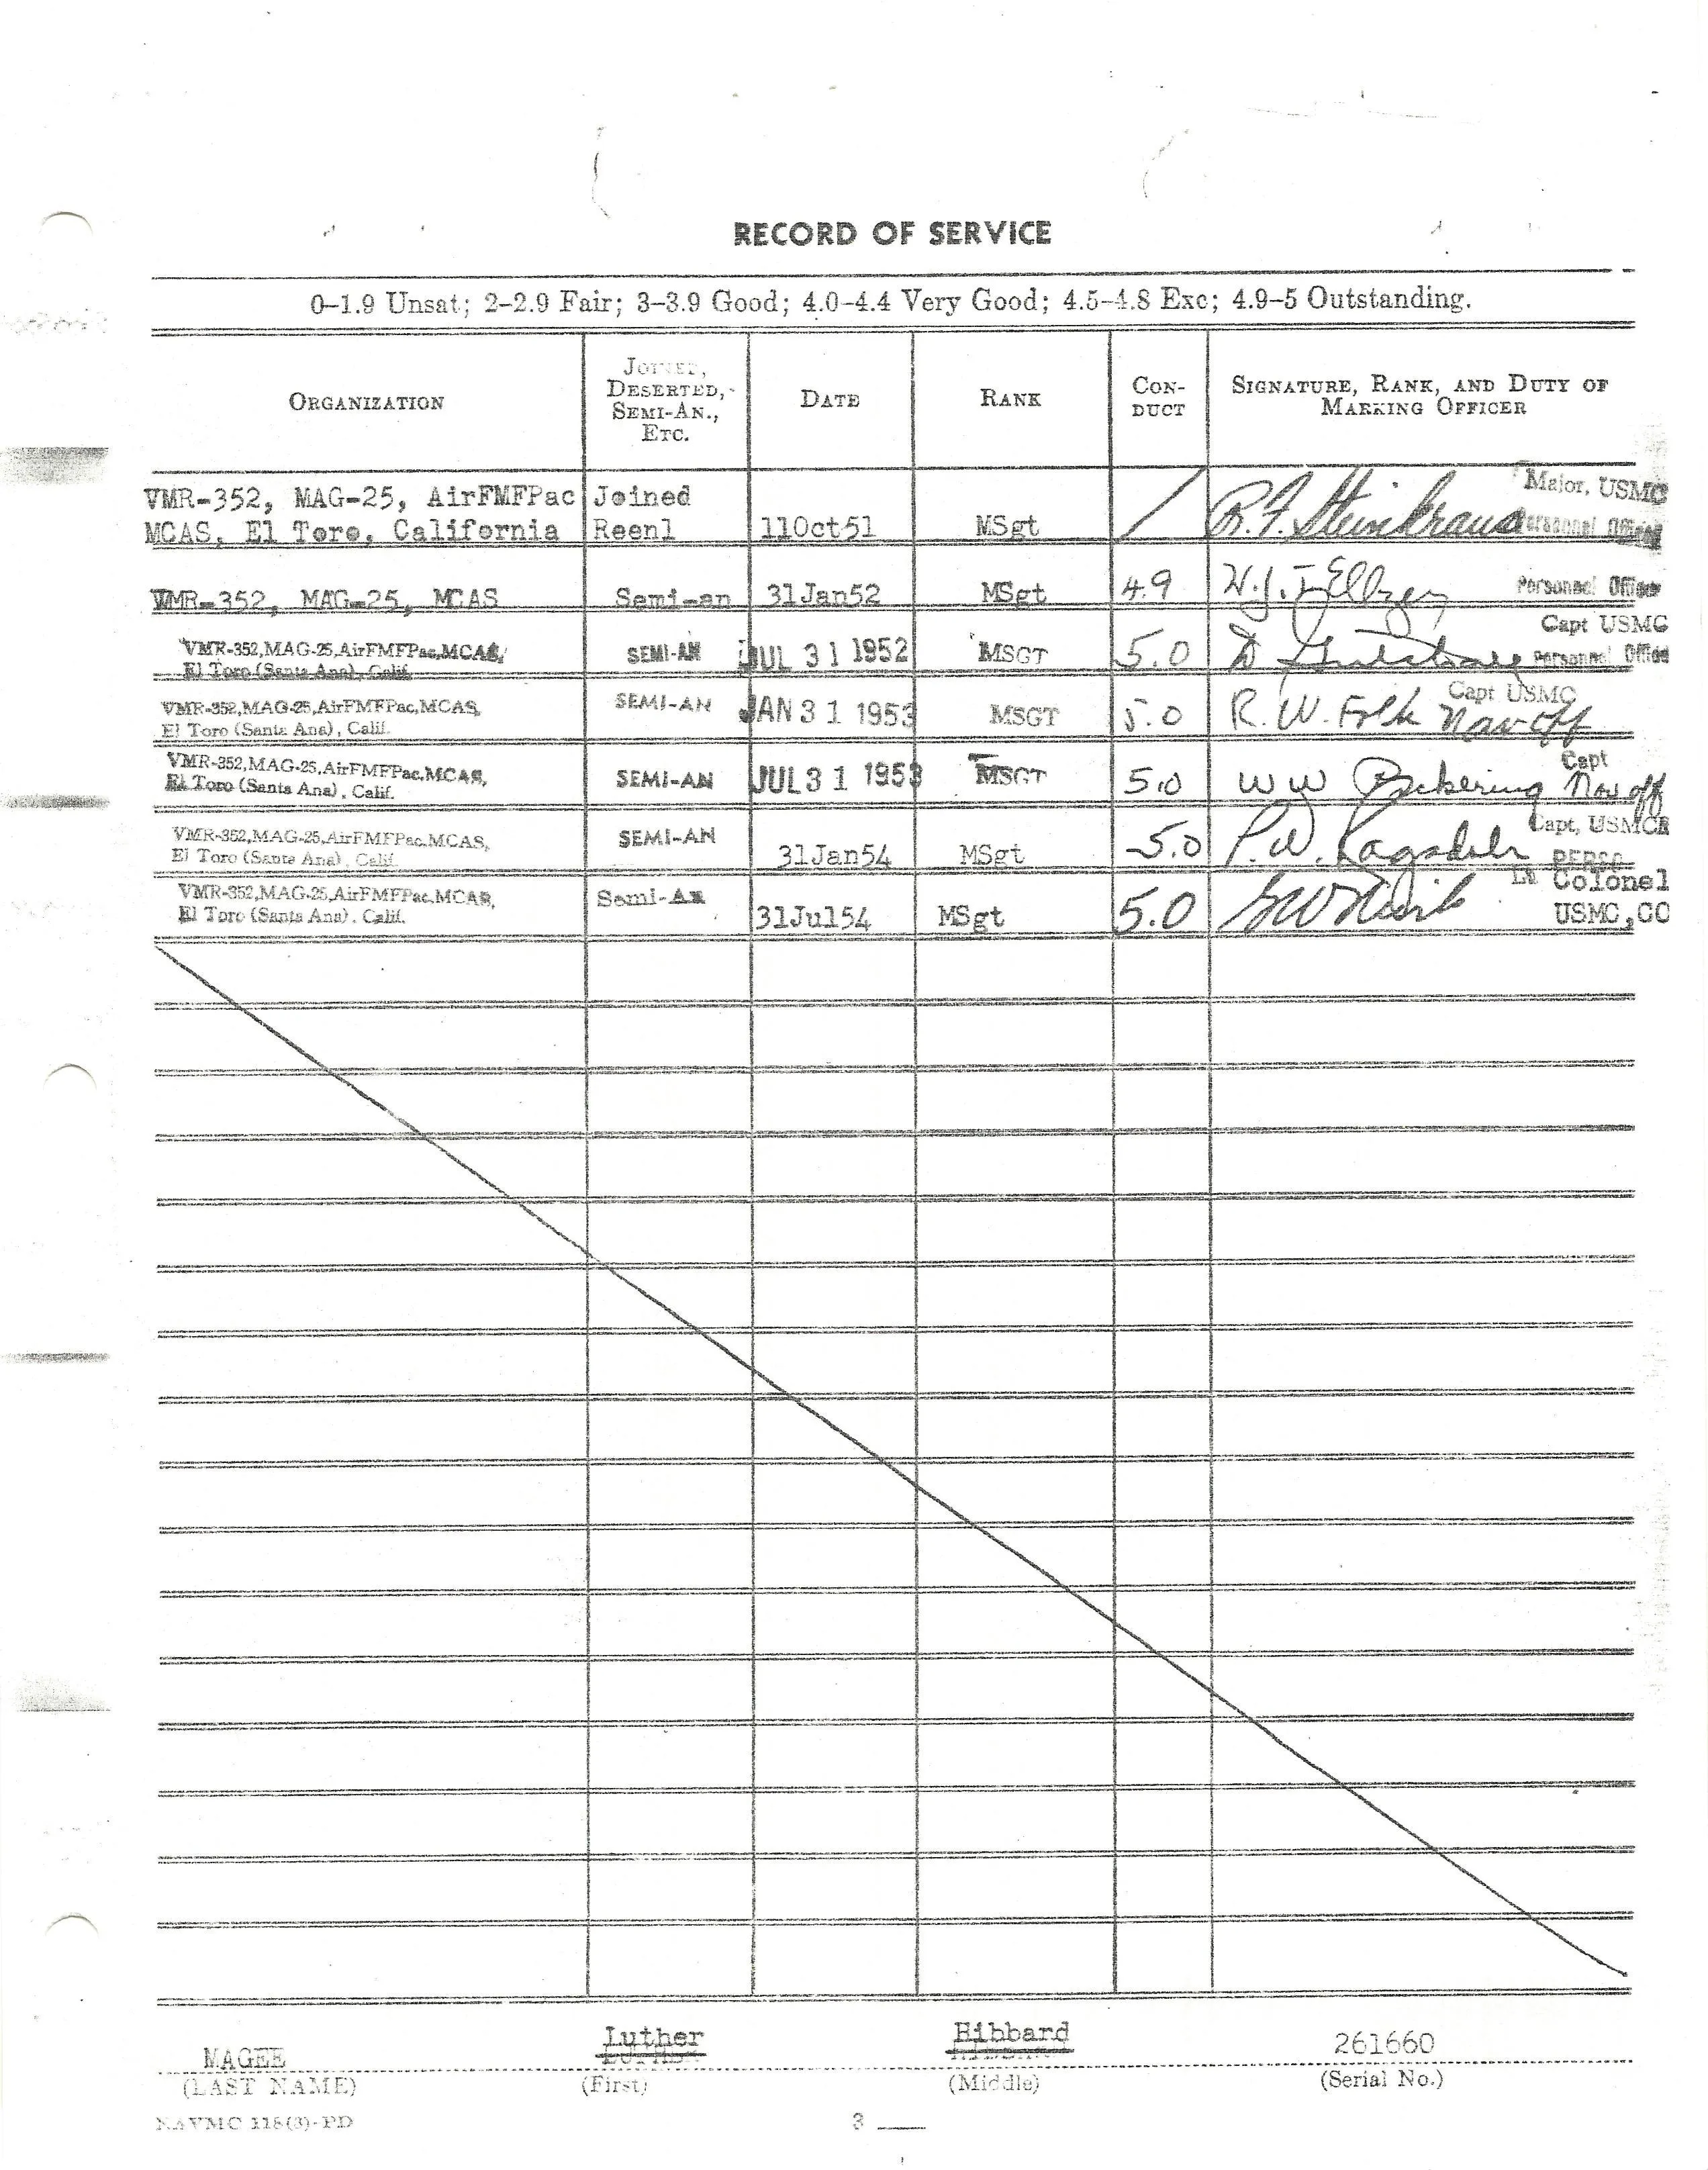 RECORD OF SERVICE
0–1.9 Unsat; 2–2.9 Fair; 3–3.9 Good; 4.0–4.4 Very Good; 4.5–4.8 Exc; 4.9–5 Outstanding.
ORGANIZATION
JOINED, DESERTED, SEMI-AN., ETC.
DATE
RANK
CON-DUCT
SIGNATURE, RANK, AND DUTY OF MARKING OFFICER
VMR-352, MAG-25, AirFMFPac Joined Major, USMC
MCAS, El Toro, California Reenl 11Oct51 MSgt / R.F. Steinkraus Personnel Officer
VMR-352, MAG-25, MCAS Semi-an 31Jan52 MSgt 4.9 W.J. Personnel Officer
Capt USMC
VMR-352,MAG-25,AirFMFPac,MCAS, SEMI-AN JUL 31 1952 MSGT 5.0 Personnel Officer
El Toro (Santa Ana), Calif.
VMR-352,MAG-25,AirFMFPac,MCAS, SEMI-AN JAN 31 1953 MSGT 5.0 R. W. Capt USMC
El Toro (Santa Ana), Calif. Nav off
VMR-352,MAG-25,AirFMFPac,MCAS, Capt
El Toro (Santa Ana), Calif. SEMI-AN JUL 31 1953 MSGT 5.0 W W Pickering Nav off
VMR-352,MAG-25,AirFMFPac,MCAS, SEMI-AN Capt, USMCR
El Toro (Santa Ana), Calif. 31Jan54 MSgt 5.0 P. W. Ragsdale PERSO
VMR-352,MAG-25,AirFMFPac,MCAS, Semi-An Lt Colonel
El Toro (Santa Ana), Calif. 31Jul54 MSgt 5.0 USMC,CO
MAGEE Luther Hibbard 261660
(LAST NAME) (First) (Middle) (Serial No.)
NAVMC 118(3)-PD 3